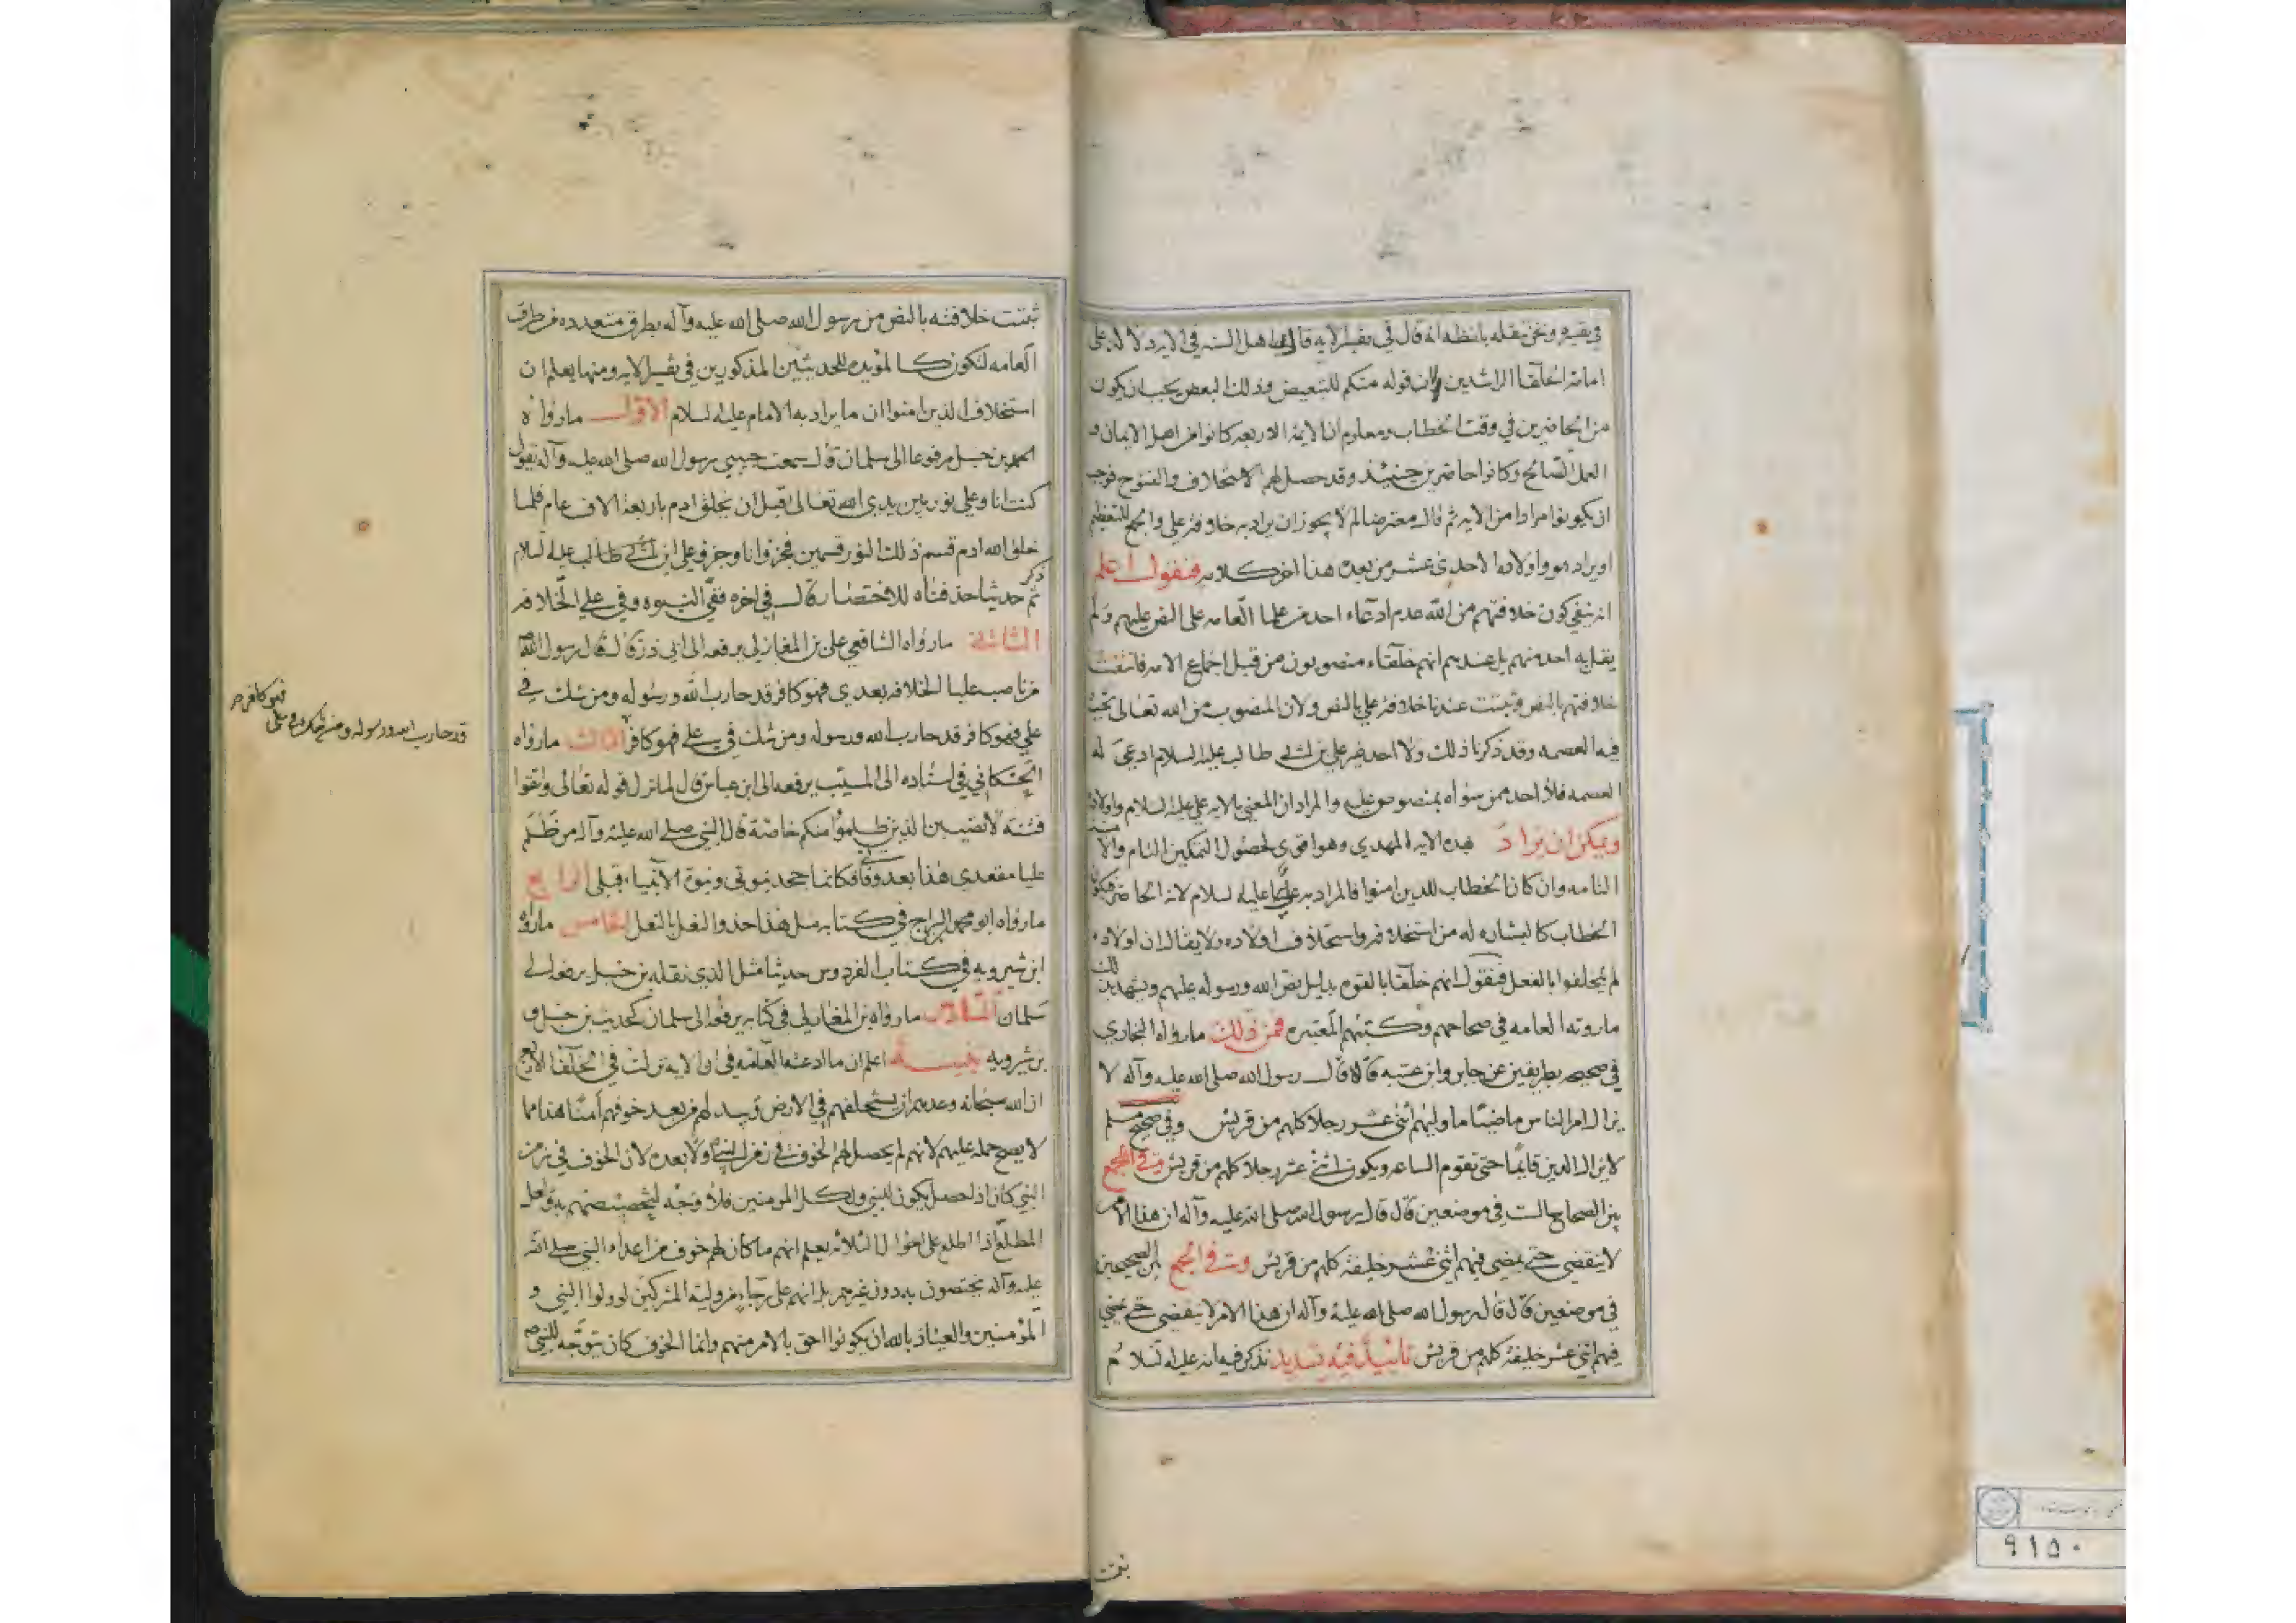 في تفسيره ونحن ننقله بلفظه انه قال في تفسير الايه قال اهل السنه في الايه دلالة على
امامة الخلفا الراشدين لان قوله منكم للتبعيض وذلك البعض يجب ان يكون
من الحاضرين في وقت الخطاب ومعلوم ان الايمة الاربعه كانوا من اهل الايمان و
العمل الصالح وكانوا حاضرين حينئذ وقد حصل لهم الاستخلاف والفتوح فوجب
ان يكونوا مرادا من الايه ثم قال معترضا لم لا يجوز ان يراد به خلافة علي والجمع للتعظيم
او يراد هو واولاده الاحدى عشر من بعده هذا اخر كلامه فنقول اعلم
انه ينفي كون خلافتهم من الله عدم ادعاء احد من علما العامه على النص عليهم ولم
يقل به احد منهم بل عندهم انهم خلفاء منصوبون من قبل اجماع الامه فانتفت
خلافتهم بالنص وثبتت عندنا خلافة علي بالنص ولان المنصوب من الله تعالى يجب
فيه العصمه وقد ذكرنا ذلك ولا احد غير علي بن ابي طالب عليه السلام ادعي له
العصمه فلا احد ممن سواه بمنصوص عليه والمراد ان المعني بالايه علي عليه السلام واولاده
ويمكن ان يراد بهذه الايه المهدي وهو اقوى لحصول التمكين التام والامنيه
التامه وان كان الخطاب للذين امنوا فالمراد به عليا عليه السلام لانه الحاضر فيكون
الخطاب كالبشاره له من استخلافه واستخلاف اولاده ولا يقال ان اولاده
لم يخلفوا بالفعل فنقول انهم خلفا بالقوه بدليل نص الله ورسوله عليهم ويشهد بذلك
ما روته العامه في صحاحهم وكتبهم المعتبره فمن ذلك ما رواه البخاري
في صحيحه بطريقين عن جابر وابن عتبه قالا قال رسول الله صلى الله عليه وآله لا
يزال امر الناس ماضيا ما وليهم اثنى عشر رجلا كلهم من قريش وفي صحيح مسلم
لا يزال الدين قايما حتى تقوم الساعه ويكون اثنى عشر رجلا كلهم من قريش وفي الجمع
بين الصحاح الست في موضعين قال قال رسول الله صلى الله عليه وآله ان هذا الامر
لا ينقضي حتى يمضي فيهم اثني عشر خليفة كلهم من قريش وفي الجمع بين الصحيحين
في موضعين قال قال رسول الله صلى الله عليه وآله ان هذا الامر لا ينقضي حتى يمضي
فيهم اثني عشر خليفة كلهم من قريش تأييد فيه تسديد نذكر فيه انه عليه السلام
ثبتت
ثبتت خلافته بالنص من رسول الله صلى الله عليه وآله بطرق متعدده من طرق
العامه لتكون كالمؤيده للحديثين المذكورين في تفسير الايه ومنها يعلم ان
استخلاف الذين امنوا ان ما يراد به الامام عليه السلام الاول ما رواه
احمد بن حنبل مرفوعا الى سلمان قال سمعت حبيبي رسول الله صلى الله عليه وآله يقول
كنت انا وعلي نور بين يدي الله تعالى قبل ان يخلق ادم باربعة الاف عام فلما
خلق الله ادم قسم ذلك النور قسمين فجزؤ انا وجزؤ علي ابن ابي طالب عليه السلام
ثم ذكر حديثا حذفناه للاختصار قال في اخره ففي النبوه وفي علي الخلافه
الثاني ما رواه الشافعي علي بن المغازلي يرفعه الى ابي ذر قال قال رسول الله
من ناصب عليا الخلافه بعدي فهو كافر قد حارب الله ورسوله ومن شك في
علي فهو كافر قد حارب الله ورسوله ومن شك في علي فهو كافر الثالث ما رواه
الحسكاني في اسناده الى المسيب يرفعه الى ابن عباس قال لما نزل قوله تعالى واتقوا
فتنة لا تصيبن الذين ظلموا منكم خاصة قال النبي صلى الله عليه وآله من ظلم
عليا مقعدي هذا بعد وفاتي فكانما جحد نبوتي ونبوة الانبياء قبلي الرابع
ما رواه ابو محمد السراج في كتابه مثل هذا حذو النعل بالنعل الخامس ما رواه
ابن شيرويه في كتاب الفردوس حديثا مثل الذي نقله بن حنبل يرفعه الى
سلمان السادس ما رواه بن المغازلي في كتابه يرفعه الى سلمان كحديث بن حنبل و
بن شرويه تنبيه اعلم ان ما ادعته العامه في ان الايه نزلت في الخلفا الاربع
ان الله سبحانه وعدهم ان يستخلفهم في الارض ويبدلهم من بعد خوفهم امنا هذا مما
لا يصح حمله عليهم لانهم لم يحصل لهم الخوف في زمن النبي ولا بعده لان الخوف في زمن
النبي كان اذ حصل يكون للنبي ولكل المومنين فلا وجه لتخصيصهم به ولعل
المطلع اذا اطلع على احوال الثلاثه يعلم انهم ما كان لهم خوف من اعداء النبي صلى الله
عليه وآله يختصون به دون غيرهم بل انهم على رجاء من ولية المشركين لو ولوا النبي و
المؤمنين والعياذ بالله ان يكونوا احق بالامر منهم وانما الخوف كان يتوجه للنبي ص
فهو كافر
قد حارب الله ورسوله ومن شك في علي
٩١٥٠